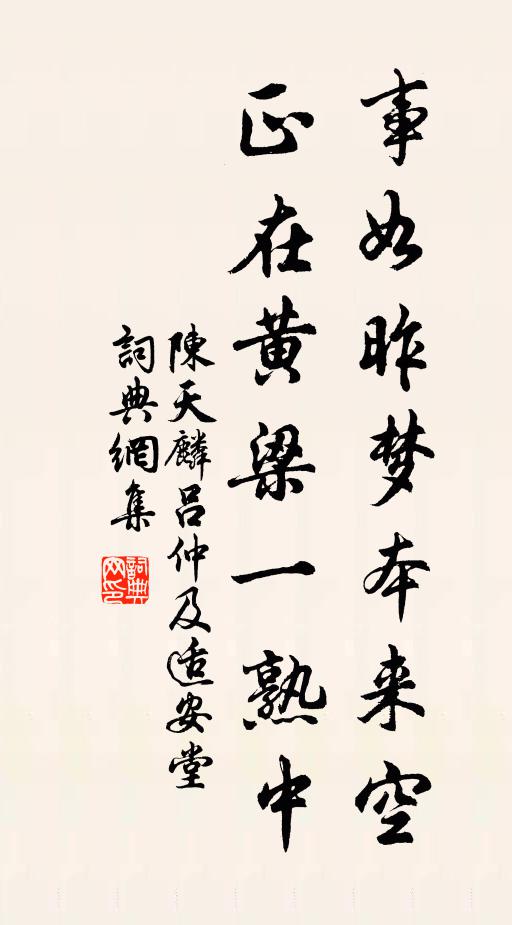 事如昨梦本来空
正在黄粱一熟中
陳天麟吕仲及适安堂
詞典網集
詞典网印